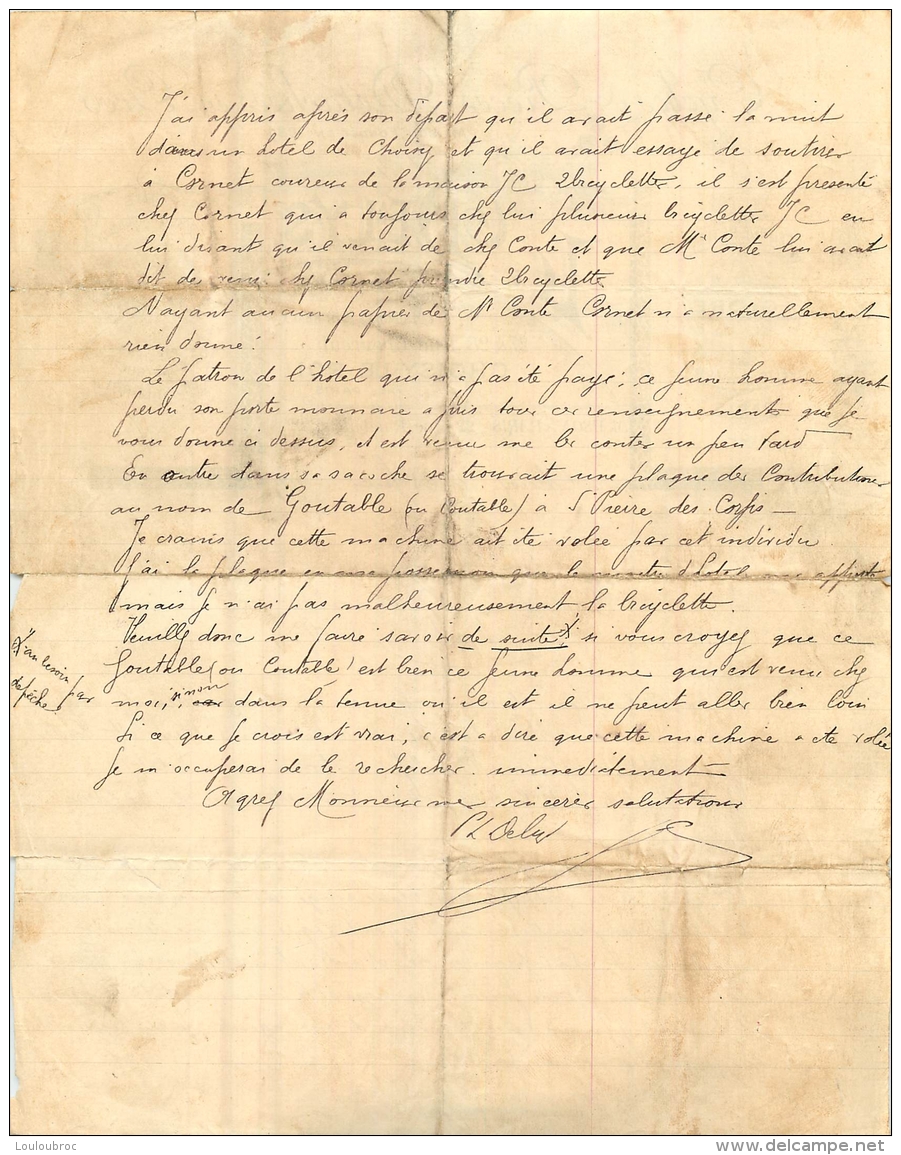 J'ai appris après son départ qu'il avait passé la nuit
dans un hotel de Choisy et qu'il avait essayé de soutirer
à Cornet coureur de la maison JC 2 bicyclettes, il s'est presenté
chez Cornet qui a toujours chez lui plusieurs bicyclettes JC en
lui disant qu'il venait de chez Conte et que Mr Conte lui avait
dit de venir chez Cornet prendre 2 bicyclettes
N'ayant aucun papier de Mr Conte Cornet n'a naturellement
rien donné!
Le patron de l'hôtel qui n'a pas été payé, ce jeune homme ayant
perdu son porte monnaie a pris tous ces renseignements que je
vous donne ci dessus, et est venu me les conter un peu tard
En outre dans sa sacoche se trouvait une plaque des Contributions
au nom de Goutable (ou Coutable) à St Pierre des Corps —
Je crains que cette machine ait été volée par cet individu
J'ai la plaque en ma possession que le maitre d'hotel m'a apporté
mais je n'ai pas malheureusement la bicyclette.
Veuillez donc me faire savoir de suite X, si vous croyez que ce
X "au besoin par
dépêche"
Goutable (ou Coutable) est bien ce jeune homme qui est venu chez
moi, sinon dans la tenue où il est il ne peut aller bien loin
Si ce que je crois est vrai, c'est a dire que cette machine a été volée
je m'occuperai de le rechercher immediatement
Agréez Monsieur mes sincères salutations
Louloubroc
delcampe.net